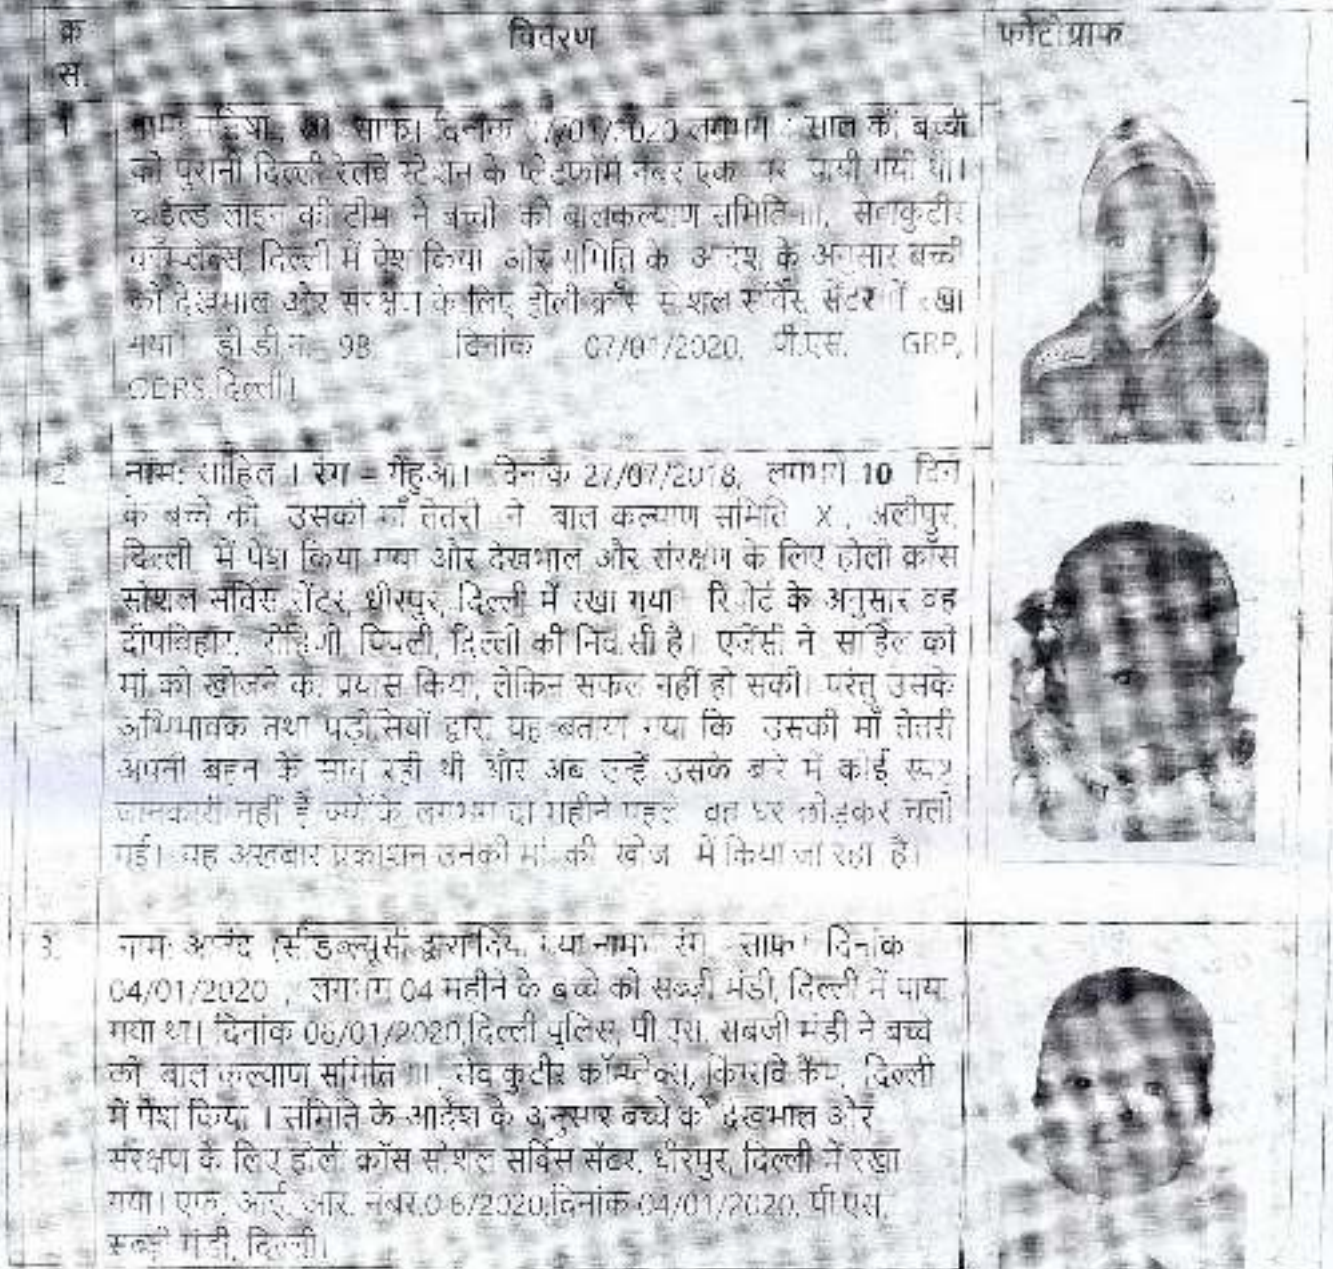 क्र विवरण फोटोग्राफ
स.
साफ। दिनांक लगभग साल की बच्ची
को पुरानी दिल्ली रेलवे स्टेशन के प्लेटफॉर्म नंबर एक पर पायी गयी थी।
चाईल्ड लाइन की टीम ने बच्ची को बालकल्याण समिति सेवाकुटीर
कॉम्प्लेक्स, दिल्ली में पेश किया और समिति के आदेश के अनुसार बच्ची
को देखभाल और संरक्षण के लिए होली क्रॉस सोशल सर्विस सेंटर में रखा
गया। डी.डी.नं. 98 दिनांक 07/01/2020, पी.एस. GRP,
ODRS,दिल्ली।
2 नाम: साहिल । रंग – गेहुंआ। दिनांक 27/07/2018, लगभग 10 दिन
के बच्चे को उसकी माँ तेतरी ने बाल कल्याण समिति X , अलीपुर,
दिल्ली में पेश किया गया और देखभाल और संरक्षण के लिए होली क्रॉस
सोशल सर्विस सेंटर, धीरपुर, दिल्ली में रखा गया रिपोर्ट के अनुसार वह
दीपविहार, रोहिणी, दिल्ली की निवासी है। एजेंसी ने साहिल की
मां को खोजने का प्रयास किया, लेकिन सफल नहीं हो सकी। परंतु उसके
अभिभावक तथा पड़ोसियों द्वारा यह बताया गया कि उसकी माँ तेतरी
अपनी बहन के साथ रही थी और अब उन्हें उसके बारे में कोई स्पष्ट
जानकारी नहीं है क्योंकि लगभग दो महीने पहले वह घर छोड़कर चली
गई। यह अखबार प्रकाशन उनकी मां की खोज में किया जा रहा है।
3. नाम: आनंद (सीडब्ल्यूसी द्वारा दिया गया नाम) रंग साफ। दिनांक
04/01/2020 , लगभग 04 महीने के बच्चे को सब्जी मंडी, दिल्ली में पाया
गया था। दिनांक 06/01/2020,दिल्ली पुलिस, पी एस, सबजी मंडी ने बच्चे
को बाल कल्याण समिति सेवा कुटीर कॉम्प्लेक्स, किंग्सवे कैंप, दिल्ली
में पेश किया । समिति के आदेश के अनुसार बच्चे को देखभाल और
संरक्षण के लिए होली क्रॉस सोशल सर्विस सेंटर, धीरपुर, दिल्ली में रखा
गया। एफ. आई. आर. नंबर. दिनांक-04/01/2020, पी.एस,
सब्जी मंडी, दिल्ली।